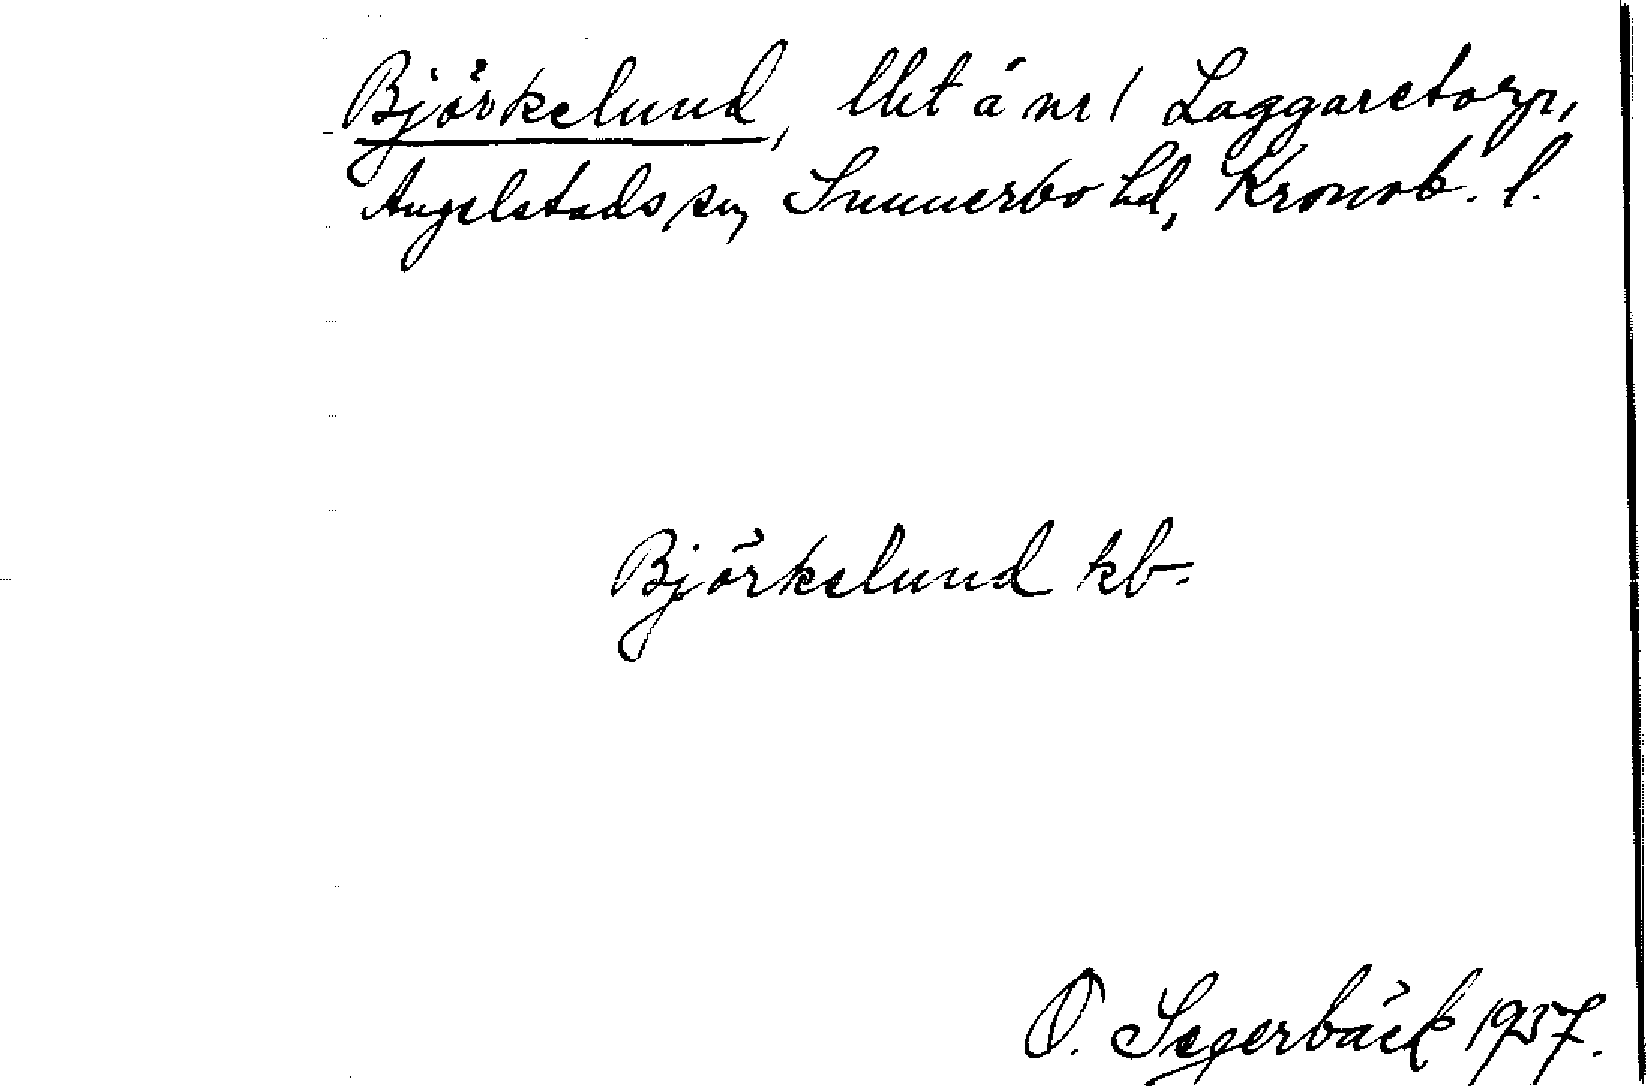 Björkelund, lht å nr 1 Laggaretorp,
Angelstads sn, Sunnerbo hd, Kronob. l.
Björkelund kb.
O. Segerbäck 1937.